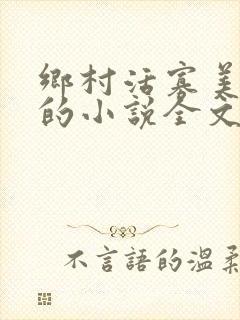 鄉村活寡美
的小說全文
不言語的溫柔